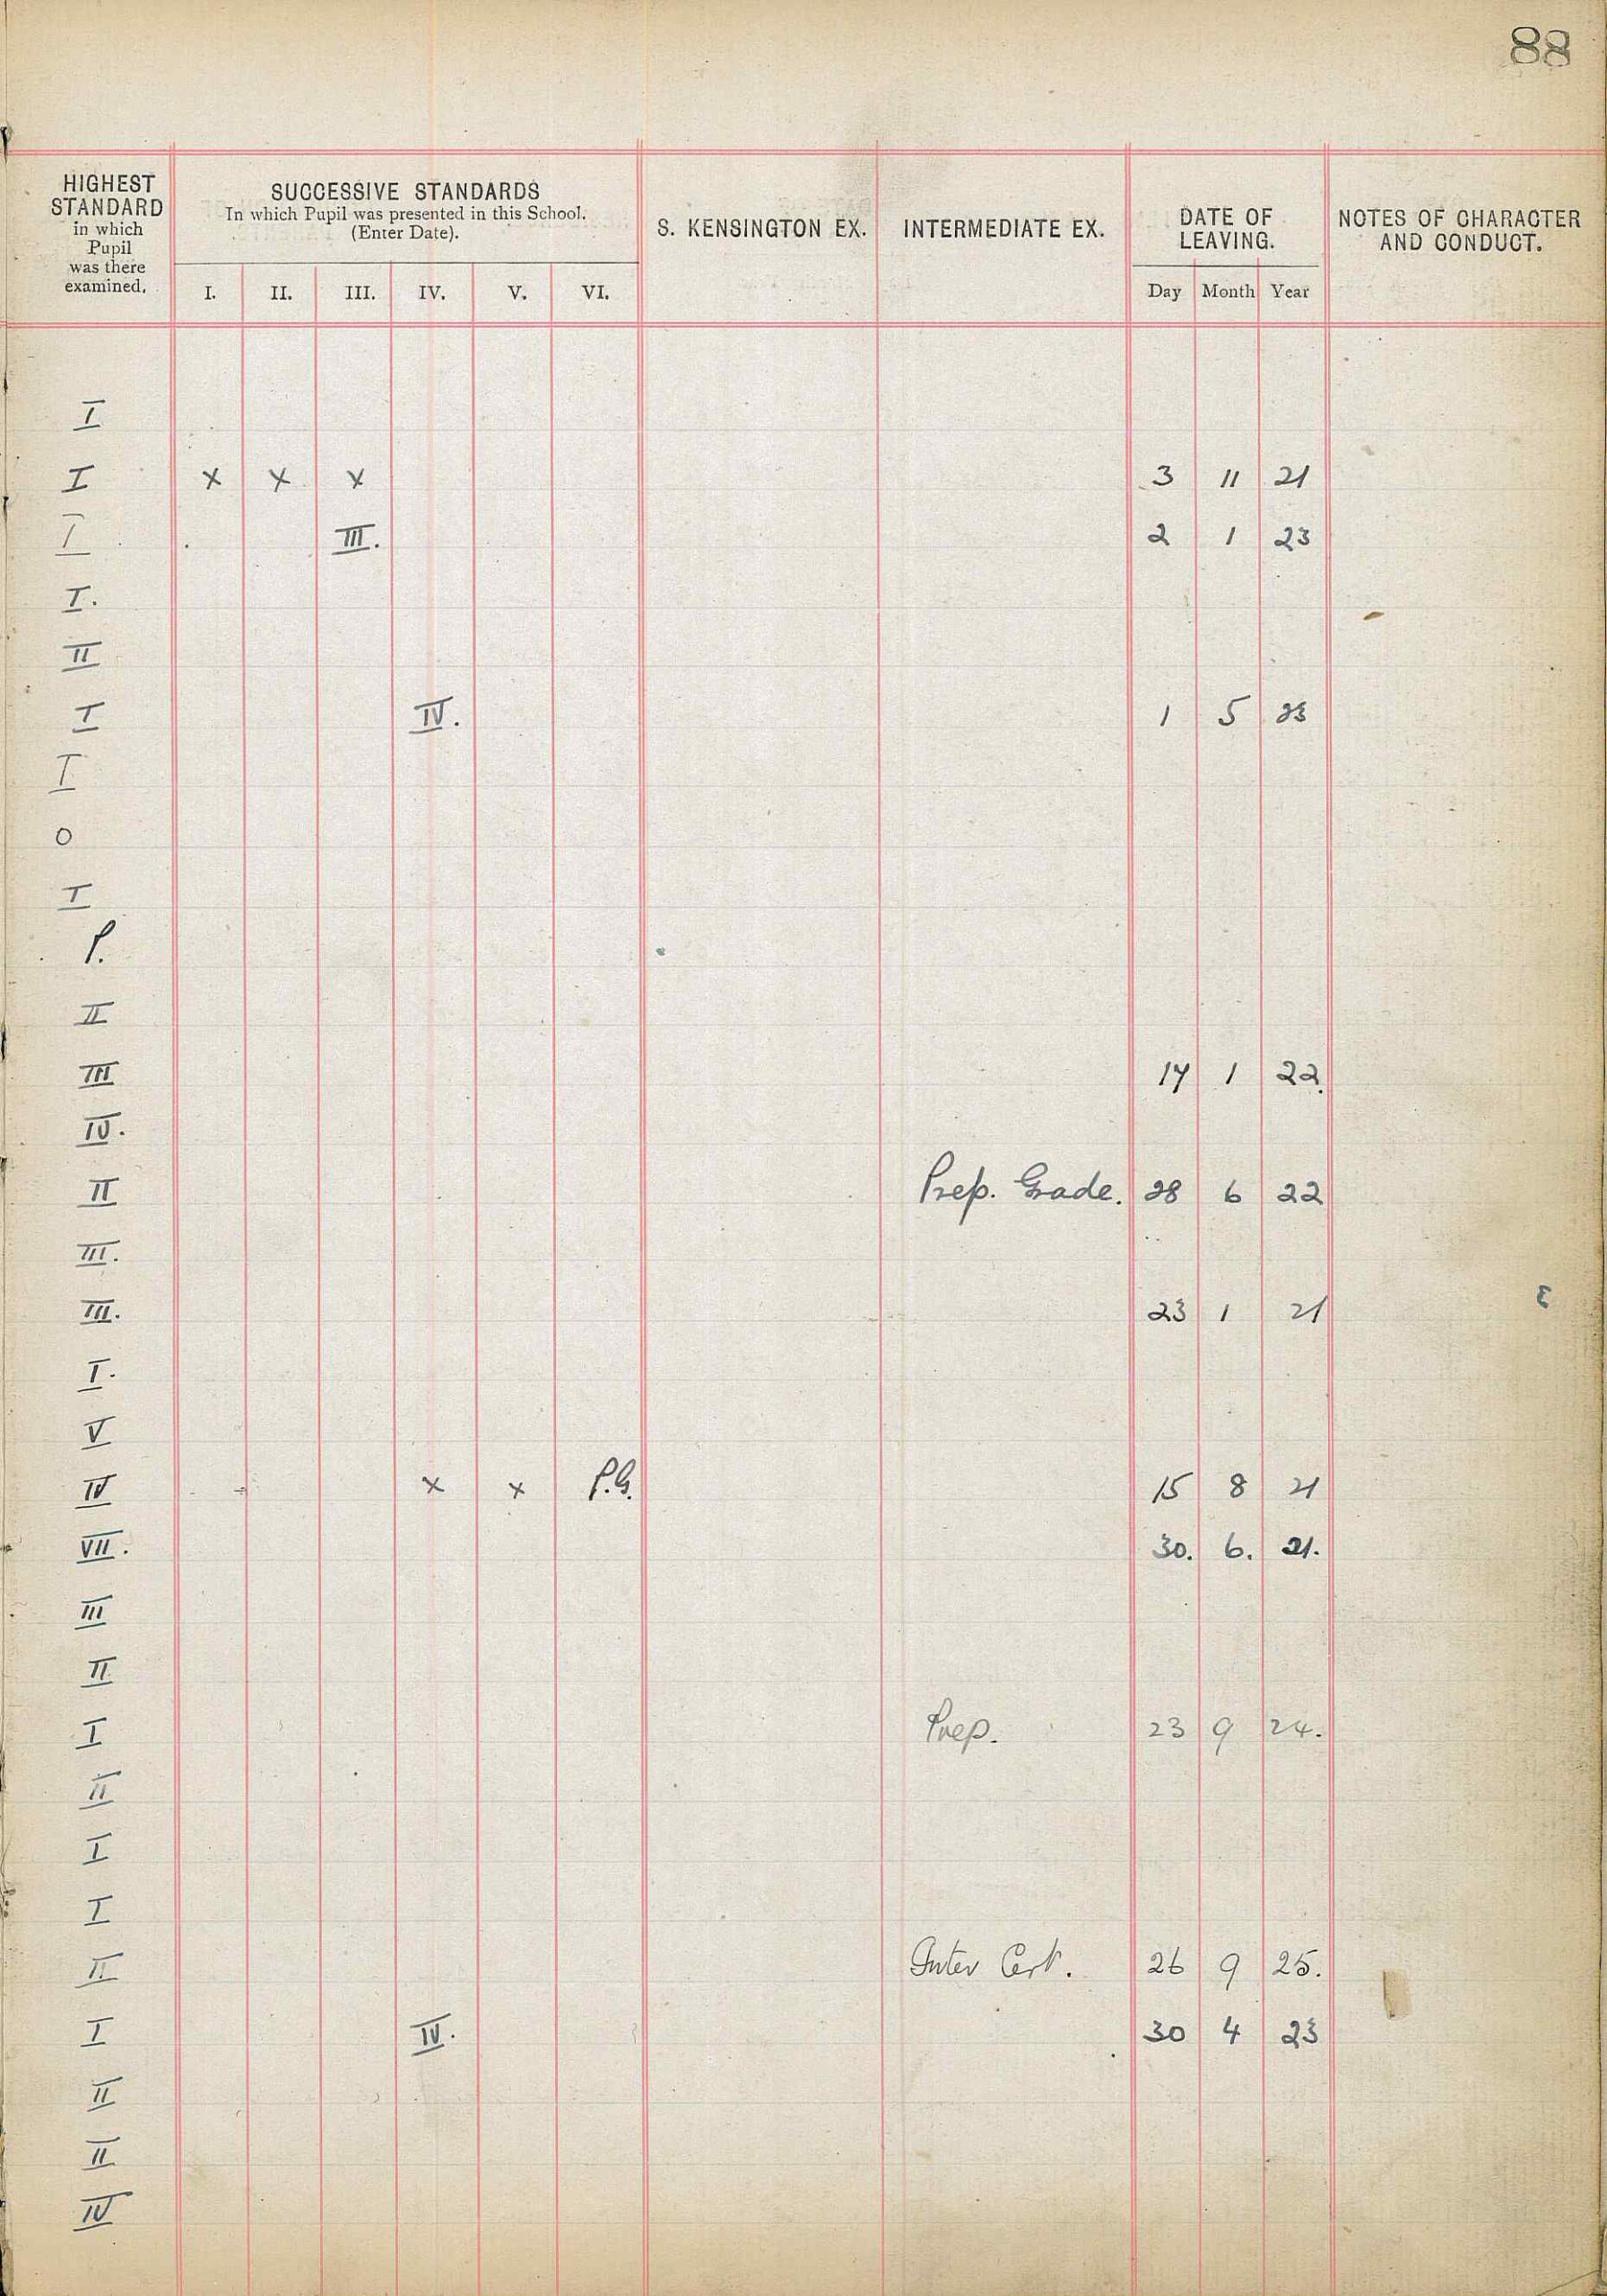 88
HIGHEST STANDARD in which Pupil was there examined.
SUCCESSIVE STANDARDS
In which Pupil was presented in this School.
(Enter Date).
I. II. III. IV. V. VI.
S. KENSINGTON EX.
INTERMEDIATE EX.
DATE OF LEAVING.
Day Month Year
NOTES OF CHARACTER AND CONDUCT.
I
I x x x 3 11 21
I III. 2 1 23
I.
II
I IV. 1 5 23
I
O
I
P.
II
III 14 1 22
IV.
II Prep. Grade. 28 6 22
III.
III. 23 1 21
I.
V
IV x x P.G. 15 8 21
VII. 30. 6. 21.
III
II
I Prep. 23 9 24.
II
I
I
II Inter Cert. 26 9 25.
I IV. 30 4 23
II
II
IV